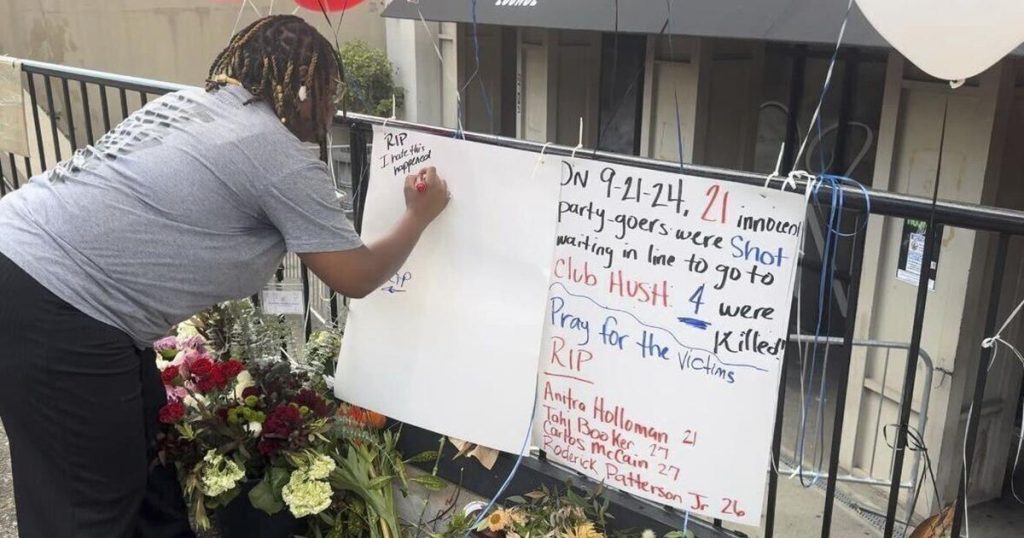 LOUNGE
"RIP
I hate this
happened
RIP
ON 9-21-24, 21 innocent
party-goers were Shot
waiting in line to go to
Club HUSH. 4 were
Killed"
Pray for the victims
RIP
Anitra Holloman 21
Tahj Booker 27
Carlos McCain 27
Roderick Patterson Jr 26